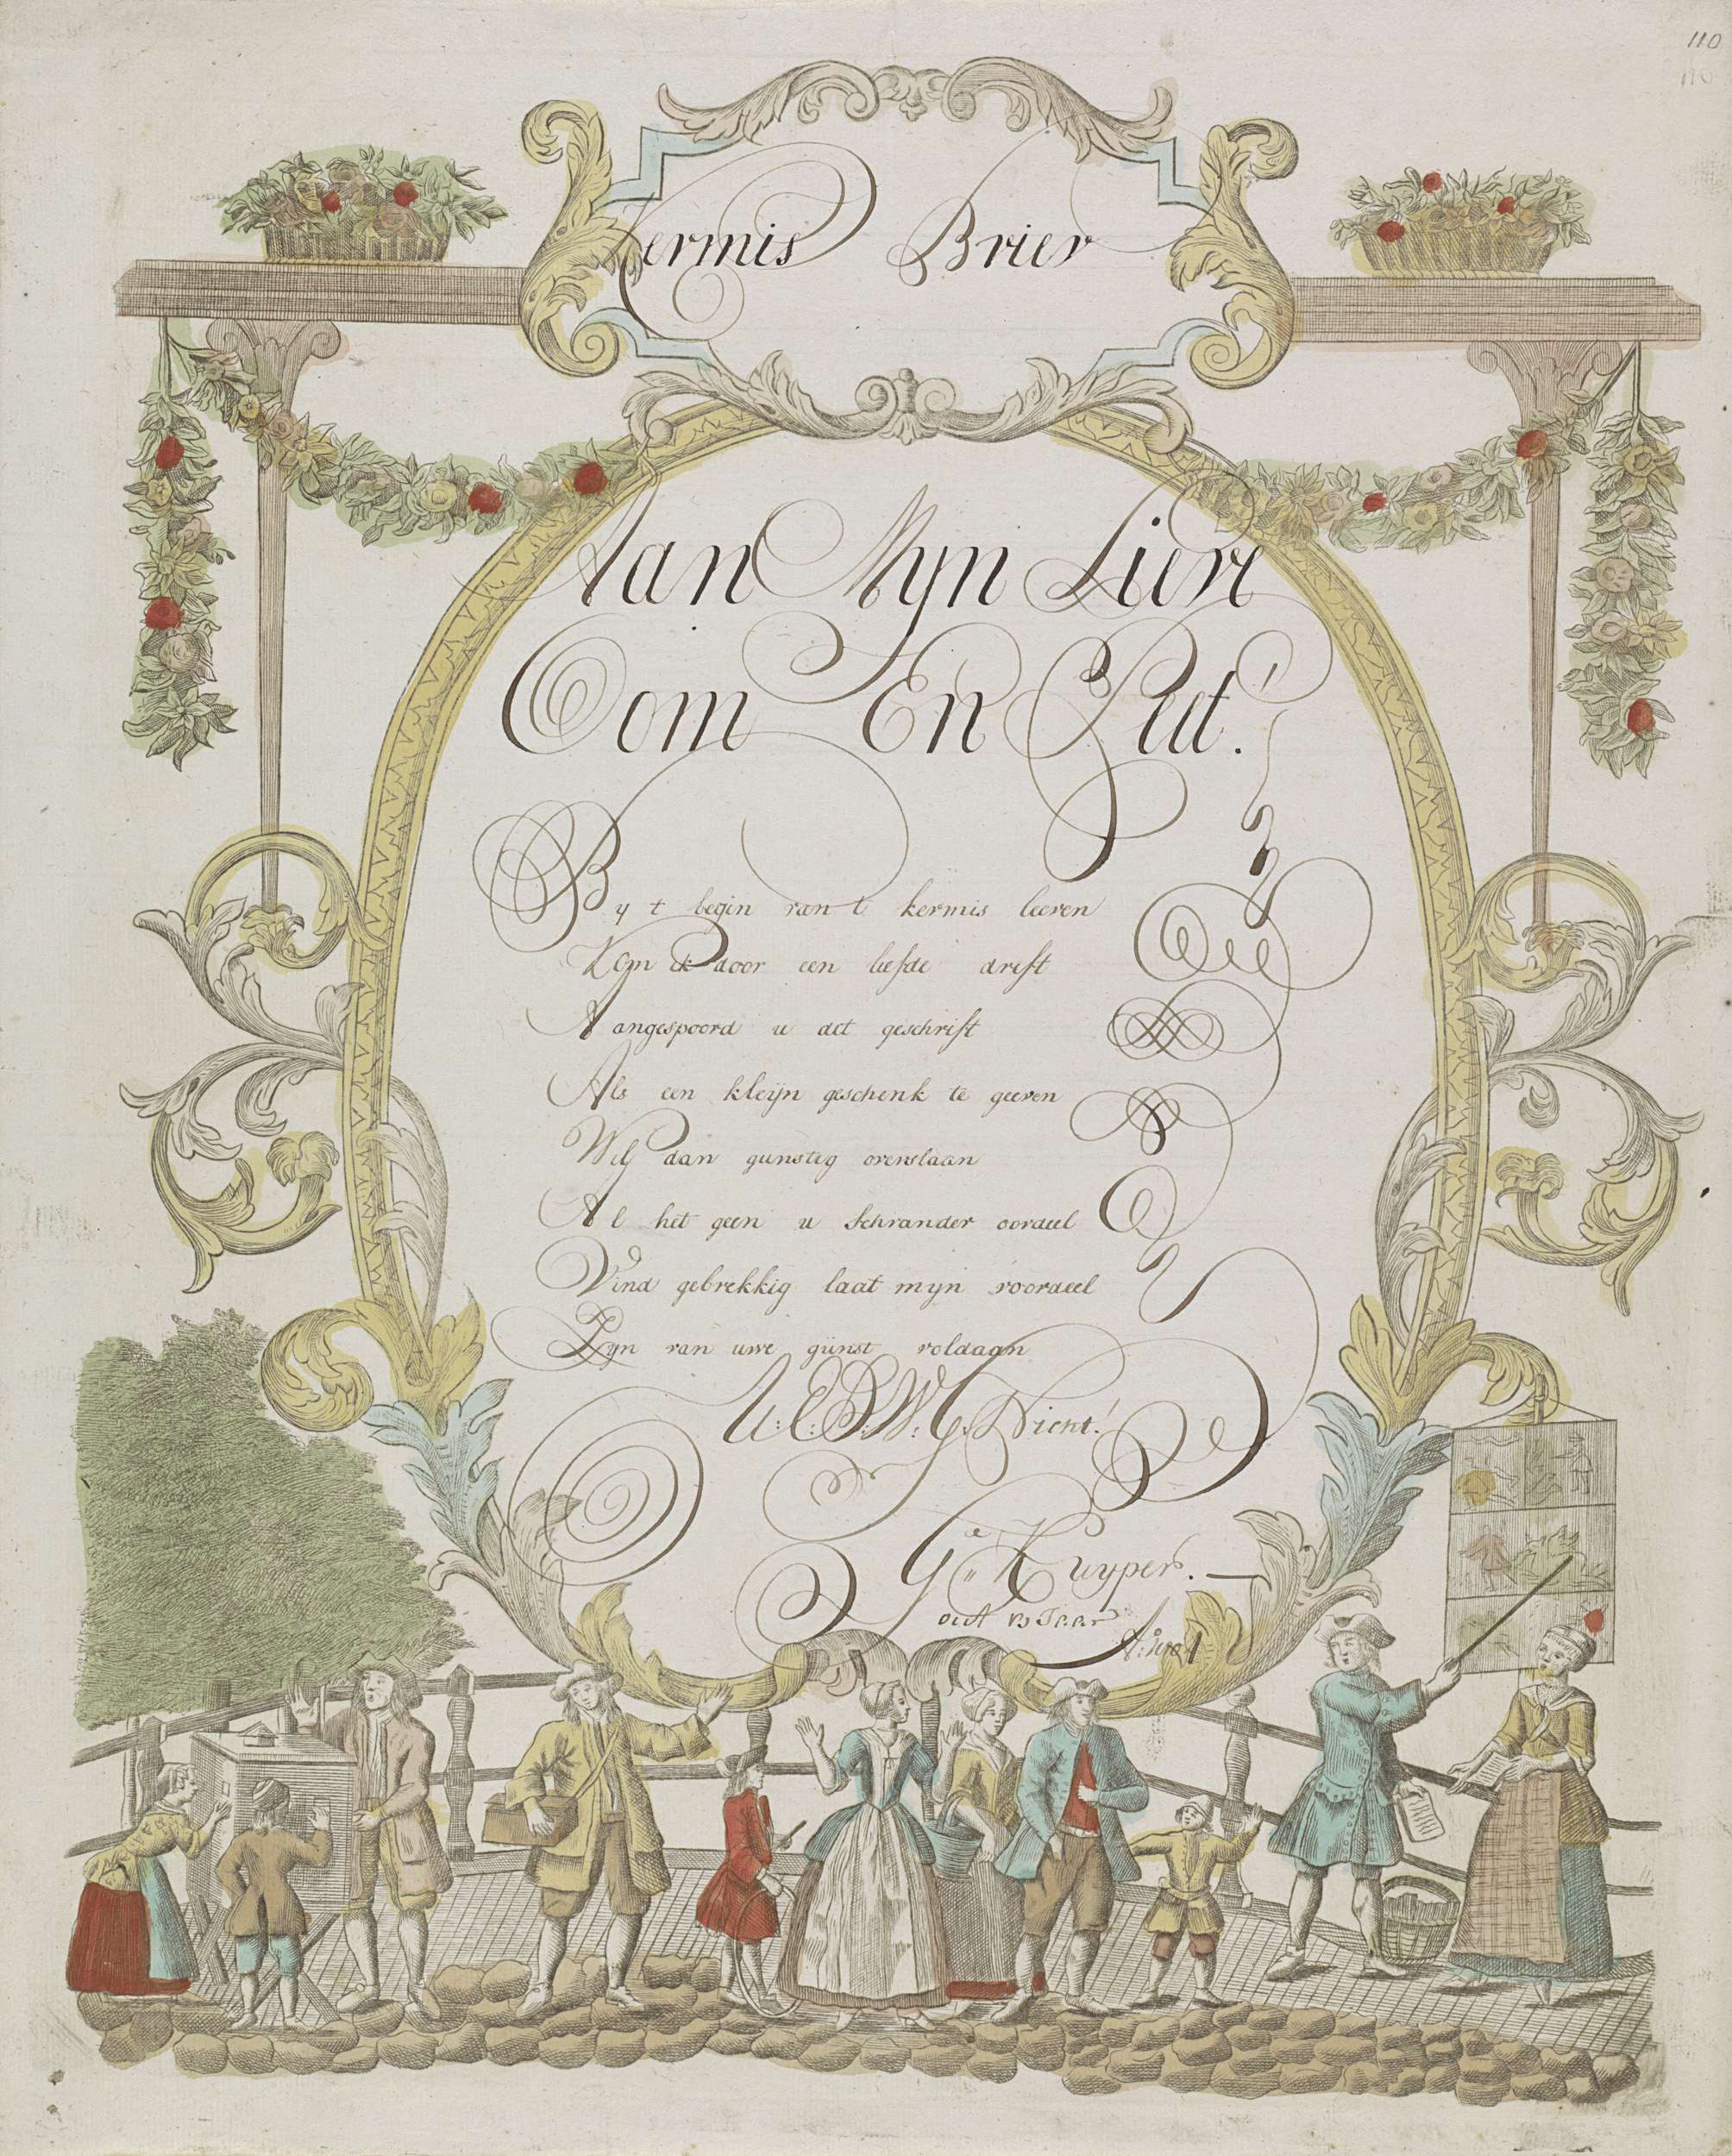 110
110
Kermis Brief
Aan Myn Lieve
Oom En Peet!
By t begin van t kermis leeven
Kom ik door een liefde drift
Aangespoord u dit geschrift
Als een kleijn geschenk te geeven
Wil dan gunstig overslaan
Al het geen u schrander oordeel
Vind gebrekkig laat myn voordeel
Zyn van uwe gunst voldaan
U: E: D: W: Nicht!
G: Kuyper.
out 13 Jaar